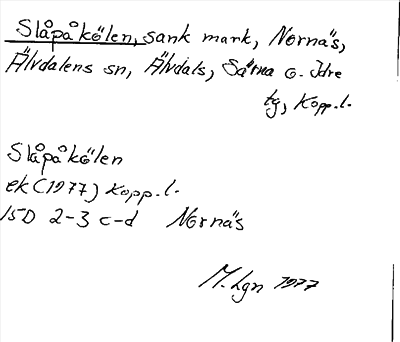 Slåpåkölen, sank mark, Nornäs,
Älvdalens sn, Älvdals, Särna o. Idre
tg, Kopp.l.
Slåpåkölen
ek (1977) Kopp.l.
15D 2-3 c-d Nornäs
M. Lgn 1977